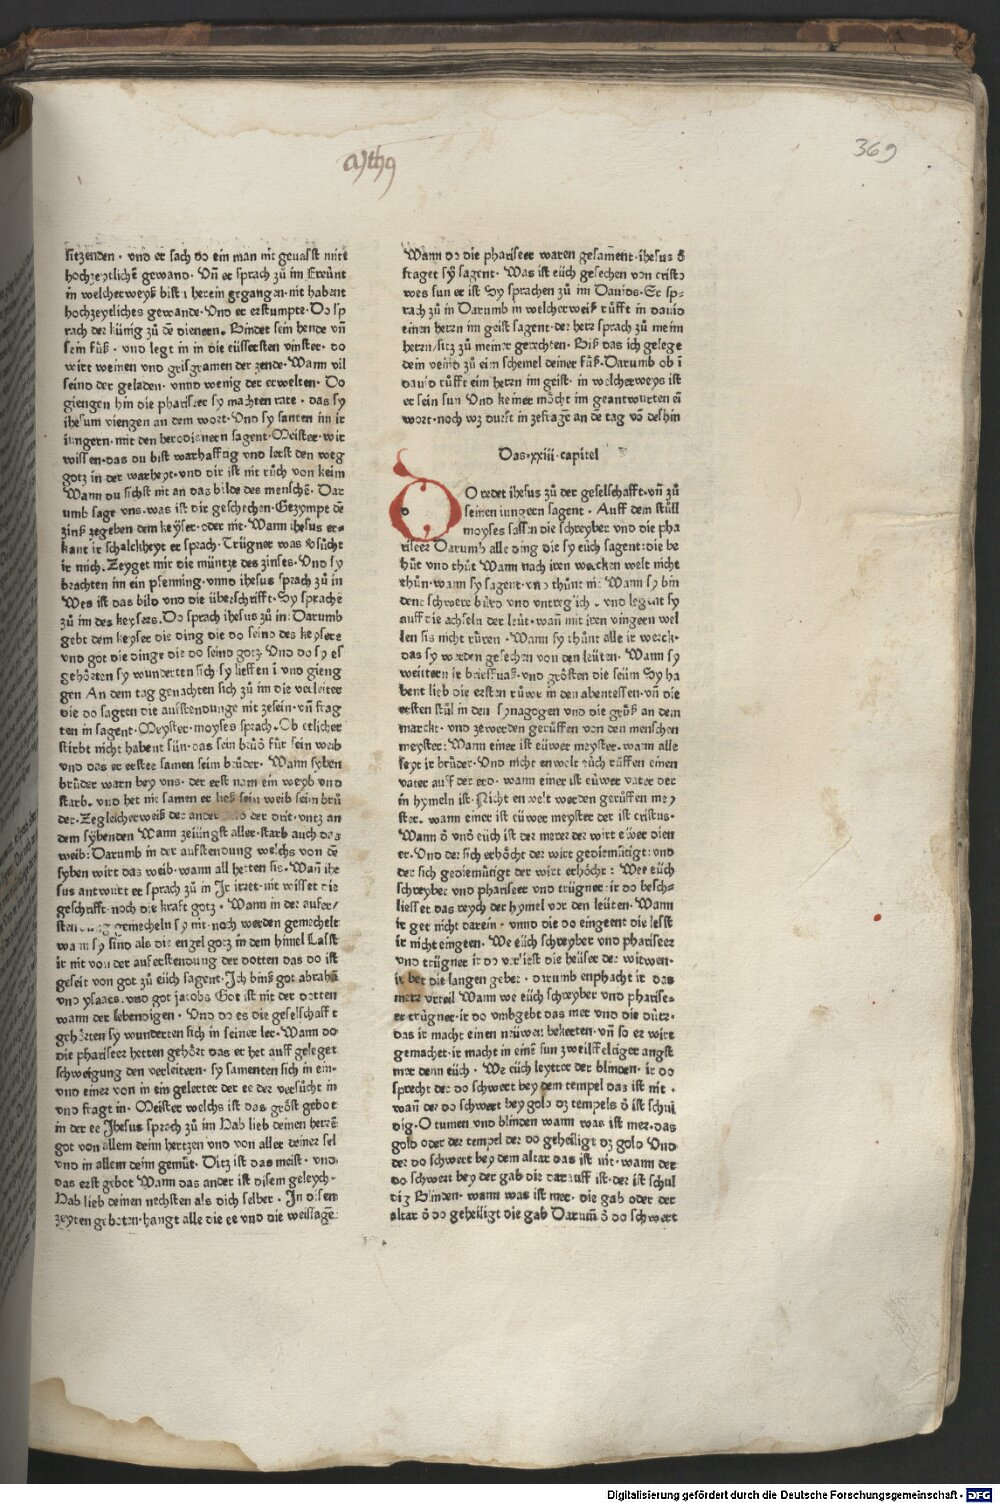 369
sitzenden · vnd er sach do ein man nit geuasst mit
hochzeytlichē gewand · Vñ er sprach zů im Freünt
in welcherweyß bist herein gegangen · nit habent
hochzeytliches gewande · Vnd er erstumpte · Do sp
rach der künig zů dē dienern · Bindet sein hende vñ
sein füß · vnd legt in in die eüssersten vinster · do
wirt weinen vnd grisgramen der zende · Wann vil
seind der geladen · vnnd wenig der erwelten · Do
giengen hin die phariseer sy machten rate · das sy
ihesum viengen an dem wort · Vnd sy santen im ir
iungern · mit den herodianern sagent · Meister · wir
wissen · das du bist warhafftig vnd lerst den weg
gotz in der warheyt · vnd dir ist nit růch von keim
Wann du sichst nit an das bilde des menschē · Dar
umb sage vns · was ist dir geschechen · Gezympt dē
zinß zegeben dem keyser · oder nit · Wann ihesus er-
kant ir schalckheyt er sprach · Trügner was v̄sůcht
ir mich · Zeyget mir die müntze des zinses · Vnd sy
brachten im ein pfenning · vnnd ihesus sprach zů in
Wes ist das bild vnd die überschrifft · Sy sprachē
zů im des keysers · Do sprach ihesus zů in: Darumb
gebt dem keyser die ding die do seind des keysers
vnd got die dinge die do seind gotz · Vnd do sy es
gehörten sy wunderten sich sy liessen in vnd gieng
gen An dem tag genachten sich zů im die verleiter
die do sagten die aufstendunge nit zesein · vñ frag
ten in sagent · Meyster · moyses sprach · Ob etlicher
stirbt nicht habent sün · das sein brůd für sein weib
vnd das er erster samen seim brůder · Wann syben
brůder warn bey vns · der erst nam ein weyb vnd
starb · vnd het nit samen er ließ sein weib seim brů
der · Zegleicherweiß der ander vnd der drit · vntz an
dem sybenden Wann zeiüngst aller · starb auch das
weib: Darumb in der aufstendung welchs von dē
syben wirt das weib · wann all hetten sis · Wañ ihe
sus antwurt er sprach zů in Ir irret · nit wisset die
geschrifft · noch die kraft gotz · Wann in der aufer/
gemecheln sy nit · noch werden gemechelt
wann sy sind als die engel gotz in dem himel Lasst
ir nit von der auferstendung der dotten das do ist
geseit von got zů eüch sagent · Ich binß got abrahā
vnd ysaacs · vnd got jacobs Got ist nit der dotten
wann der lebendigen · Vnd do es die geselschafft
gehörten sy wunderten sich in seiner ler · Wann do
die phariseer hetten gehört das er het auff geleget
schweigung den verleitern · sy samenten sich in ein ·
vnd einer von in ein gelerter der ee der versůcht in
vnd fragt in · Meister welchs ist das gröst gebot
in der ee Ihesus sprach zů im Hab lieb deinen herrē
got von allem deim hertzen vnd von aller deiner sel
vnd in allem deim gemůt · Ditz ist das meist · vnd
das erst gebot Wann das ander ist disem geleych ·
Hab lieb deinen nechsten als dich selber · In disem
zeyten geboten · hangt alle die ee vnd die weissagē
Wann do die phariseer waren gesament · ihesus ō
fraget sy sagent · Was ist eüch gesechen von cristo
wes sun er ist Sy sprachen zů im Dauids · Er sp-
rach zů in Darumb in welcherweiß růfft in dauid
einen herrn im geist sagent · der herr sprach zů meim
herrn / sitz zů meiner gerechten · Biß das ich gelege
dein veind zů eim schemel deiner füß · Darumb ob i
dauid růfft eim herrn im geist · in welcherweys ist
er sein sun Vnd keiner möcht im geantwurten eī
wort · noch wz durst in zefragē an dē tag vō deshin
Das · xxiii · capitel
O redet ihesus zů der geselschafft · vñ zů
seinen iungern sagent · Auff dem stůll
moyses sassen die schreyber vnd die pha
riseer Darumb alle ding die sy eüch sagent: die be
hüt vnd thůt Wann nach iren wercken welt nicht
thůn · wann sy sagent · vnd thůnt nit Wann sy bin
dent schwere bürd vnd vntreglich · vnd legent sy
auff die achseln der leüt · wañ mit iren vingern wel
len sis nicht růren · Wann sy thůnt alle ir werck ·
das sy werden gesechen von den leüten · Wann sy
weittern ir brieffuaß · vnd grösten die seüm Sy ha
bent lieb die ersten růwe in den abentessen · vñ die
ersten stůl in den synagogen vnd die grůß an dem
marckt · vnd zewerden gerůffen von den menschen
meyster: Wann einer ist eüwer meyster · wann alle
seyt ir brůder · Vnd nicht enwelt eüch růffen einen
vater auff der erd · wann einer ist eüwer vater der
in hymeln ist · Nicht enwelt werden gerůffen mey
ster · wann einer ist eüwer meyster der ist cristus ·
Wann ō vnd eüch ist der merer der wirt eüwer dien
er · Vnd der sich erhöcht der wirt gediemütigt: vnd
der sich gediemütigt der wirt erhöcht: Wee eüch
schreyber vnd phariseer vnd trügner: ir do besch-
liesset das reych der hymel vor den leüten · Wann
ir get nicht darein · vnnd die do eingeent die lesst
ir nicht eingeen · We eüch schreyber vnd phariseer
vnd trügner ir do verliest die heüser der witwen ·
ir bet die langen gebet · darumb enphacht ir das
merz vrteil Wann we eüch schreyber vnd pharise-
er trügner · ir do vmbgebt das mer vnd die dürr ·
das ir macht einen nüwen bekerten · vñ so er wirt
gemachet · ir macht in einē sun zweilffeltiger angst
mer denn eüch · We eüch leytter der blinden · ir do
sprecht der do schwert bey dem tempel das ist nit ·
wañ der do schwert bey gold dz tempels ō ist schul
dig · O tumen vnd blinden wann was ist mer · das
gold oder der tempel der do geheiligt dz gold Vnd
der do schwert bey dem altar das ist nit · wann der
do schwert bey der gab die darauff ist · der ist schul
dig Blinden · wann was ist mer · die gab oder der
altar ō do geheiligt die gab Darum̄ ō do schwert
Digitalisierung gefördert durch die Deutsche Forschungsgemeinschaft - DFG